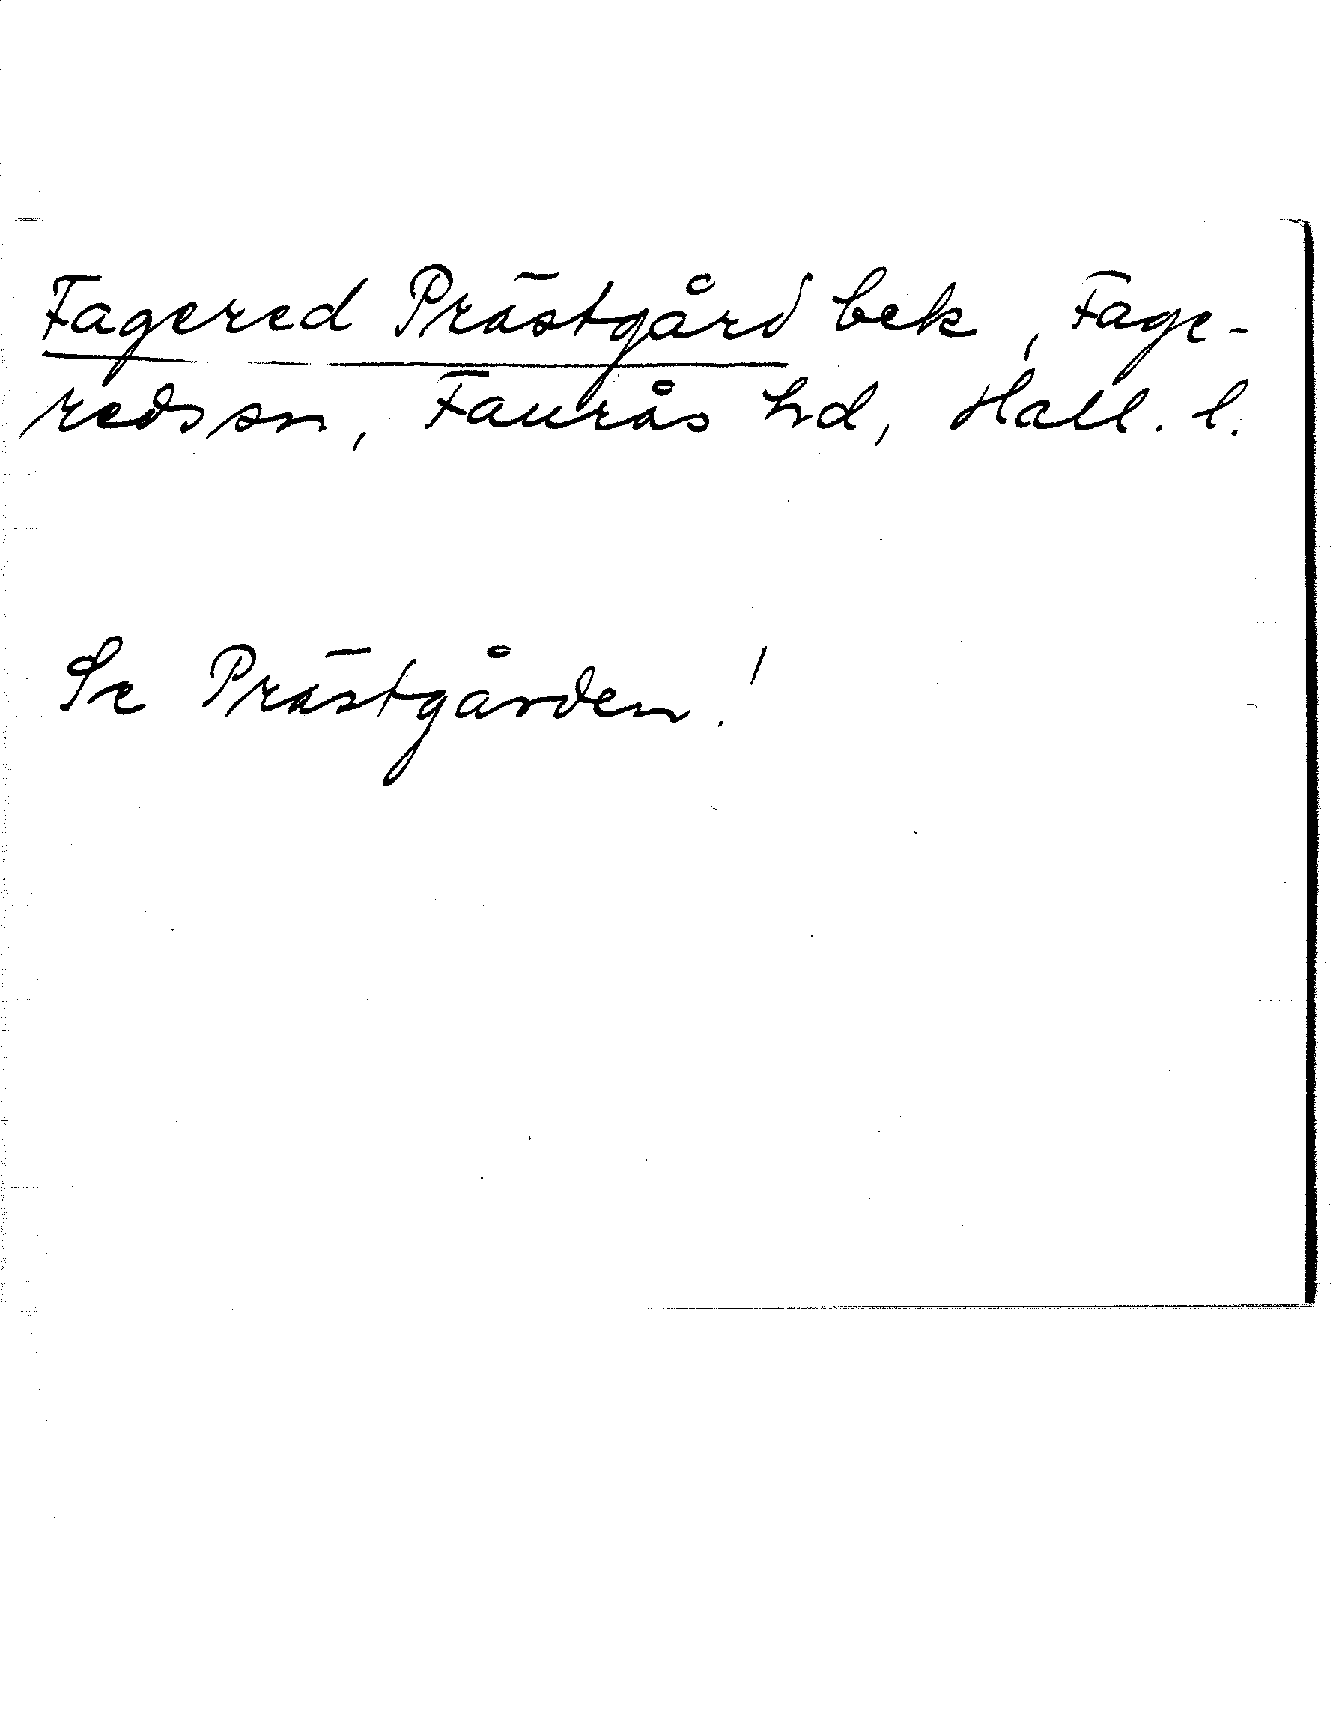 Fagered Prästgård bek, Fage-
reds sn, Faurås hd, Hall. l.
Se Prästgården!